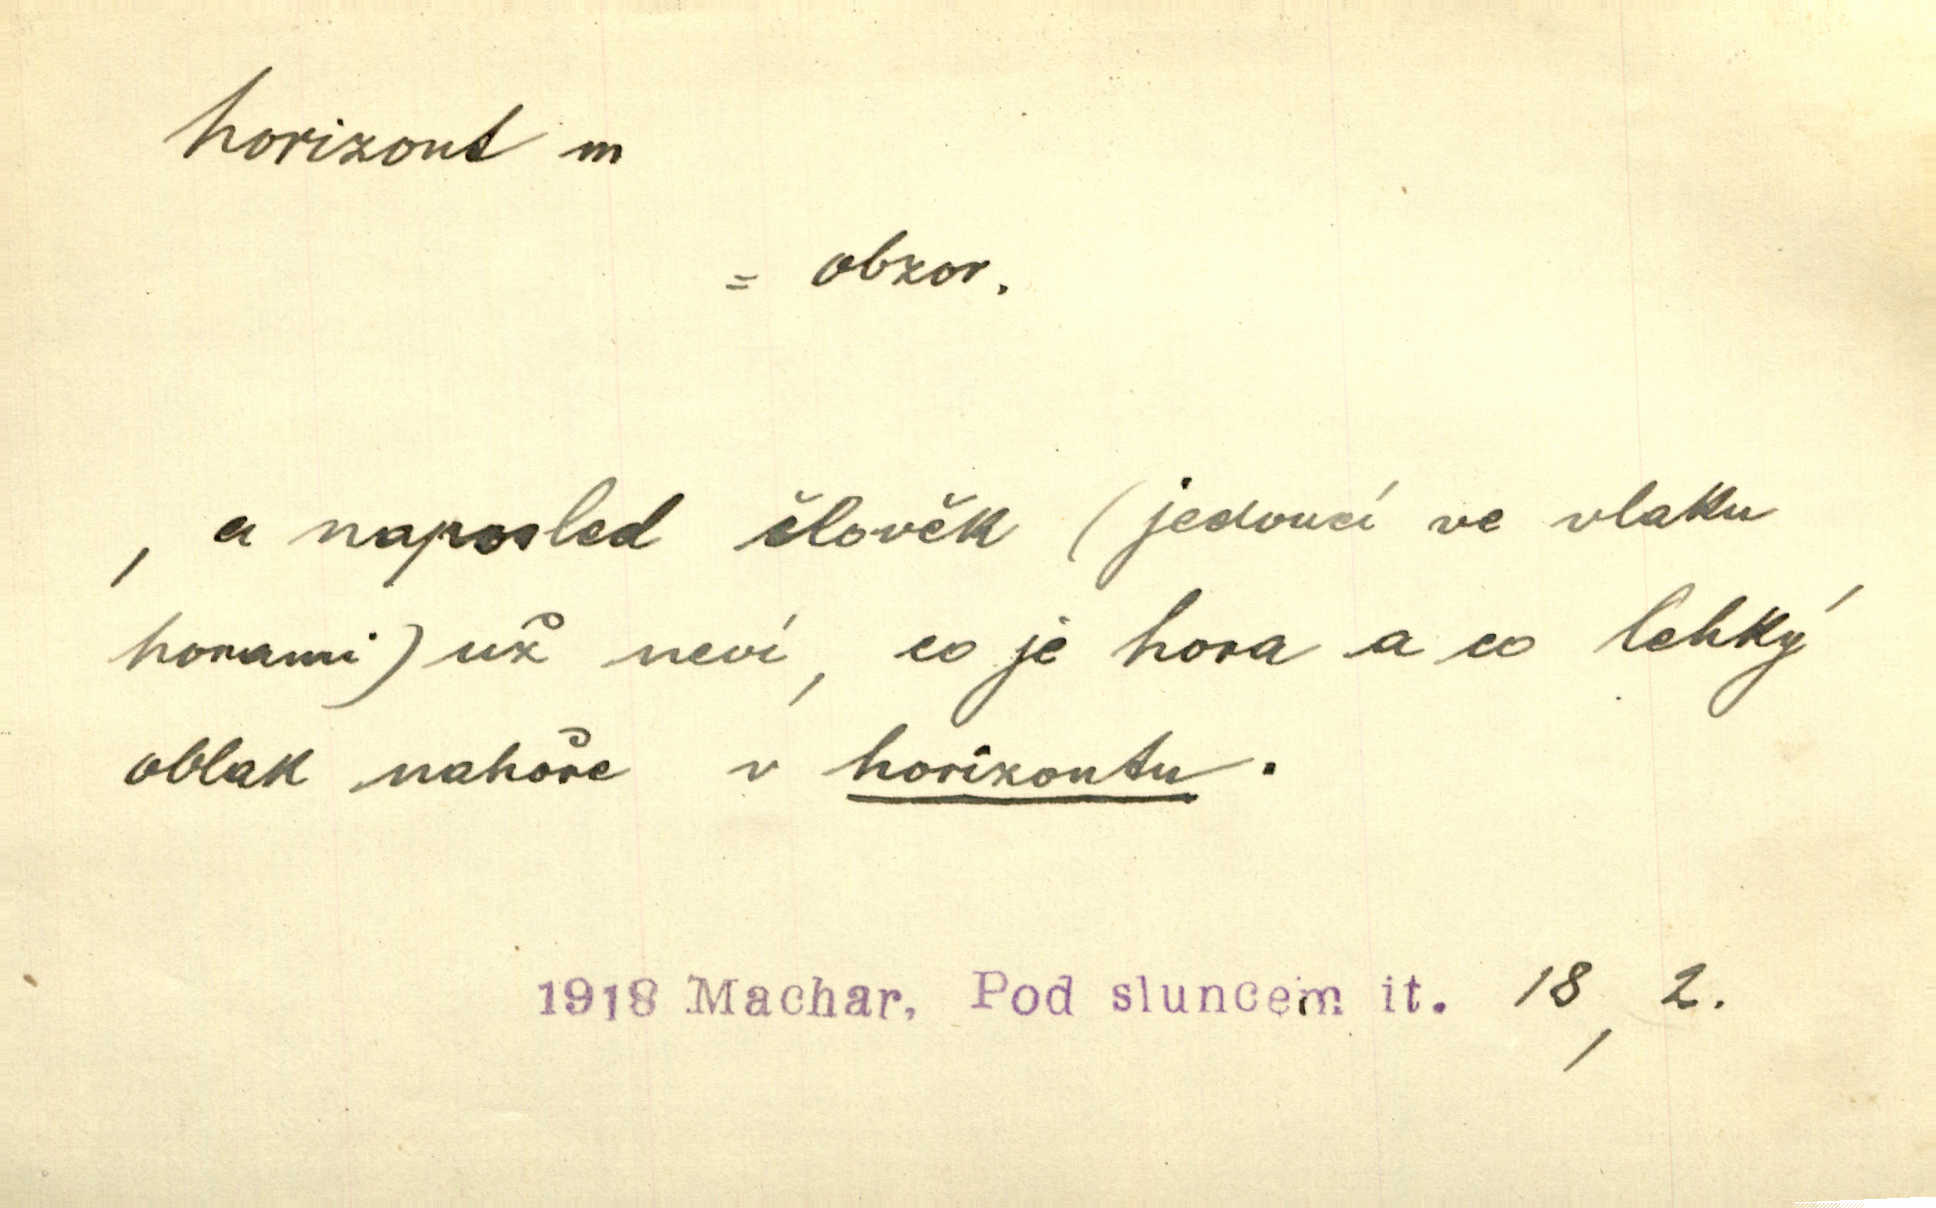 horizont m
= obzor.
, a naposled člověk (jedoucí ve vlaku
horami) už neví, co je hora a co lehký
oblak nahoře v horizontu.
1918 Machar, Pod sluncem it. 18, 2.